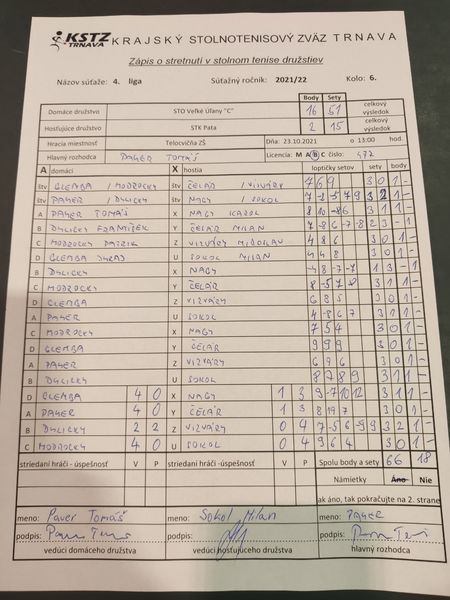 KSTZ TRNAVA KRAJSKÝ STOLNOTENISOVÝ ZVÄZ TRNAVA
Zápis o stretnutí v stolnom tenise družstiev
Názov súťaže: 4. liga Súťažný ročník: 2021/22 Kolo: 6.
Body Sety
Domáce družstvo STO Veľké Úľany "C" 16 51 celkový výsledok
Hosťujúce družstvo STK Pata 2 15 celkový výsledok
Hracia miestnosť Telocvičňa ZŠ Dňa: 23.10.2021 o 13:00 hod.
Hlavný rozhodca PAVER TOMÁŠ Licencia: M A B C číslo: 472
A domáci X hostia loptičky setov sety body
štv GLEMBA / MODROCKY štv ČELÁR / VIZVÁRY 7 6 9 3 0 1 -
štv PAVER / DYLICKY štv NAGY / SOKOL
A PAVER TOMÁŠ X NAGY KAROL 8 10 -8 6 3 1 1 -
B DYLICKY FRANTIŠEK Y ČELÁR MILAN 7 -8 6 -7 -8 2 3 - 1
C MODROCKY PATRIK Z VIZVÁRY MIROSLAV 4 8 6 3 0 1 -
D GLEMBA JURAJ U SOKOL MILAN 4 4 8 3 0 1 -
B DYLICKY X NAGY -4 8 -7 -7 1 3 - 1
C MODROCKY Y ČELÁR 8 -5 7 8 3 1 1 -
D GLEMBA Z VIZVÁRY 6 8 5 3 0 1 -
A PAVER U SOKOL 4 -8 6 7 3 1 1 -
C MODROCKY X NAGY 7 5 4 3 0 1 -
D GLEMBA Y ČELÁR 9 9 9 3 0 1 -
A PAVER Z VIZVÁRY 6 9 6 3 0 1 -
B DYLICKY U SOKOL 8 7 8 9 3 1 1 -
D GLEMBA 4 0 X NAGY 1 3 9 -7 10 12 3 1 1 -
A PAVER 4 0 Y ČELÁR 1 3 8 19 7 3 0 1 -
B DYLICKY 2 2 Z VIZVÁRY 0 4 7 -5 6 -9 9 3 2 1 -
C MODROCKY 4 0 U SOKOL 0 4 9 6 4 3 0 1 -
striedaní hráči - úspešnosť V P striedaní hráči - úspešnosť V P Spolu body a sety 66 18
Námietky Áno Nie
ak áno, tak pokračujte na 2. strane
meno: Paver Tomáš meno: Sokol Milan meno: PAVER
podpis: podpis: podpis:
vedúci domáceho družstva vedúci hosťujúceho družstva hlavný rozhodca